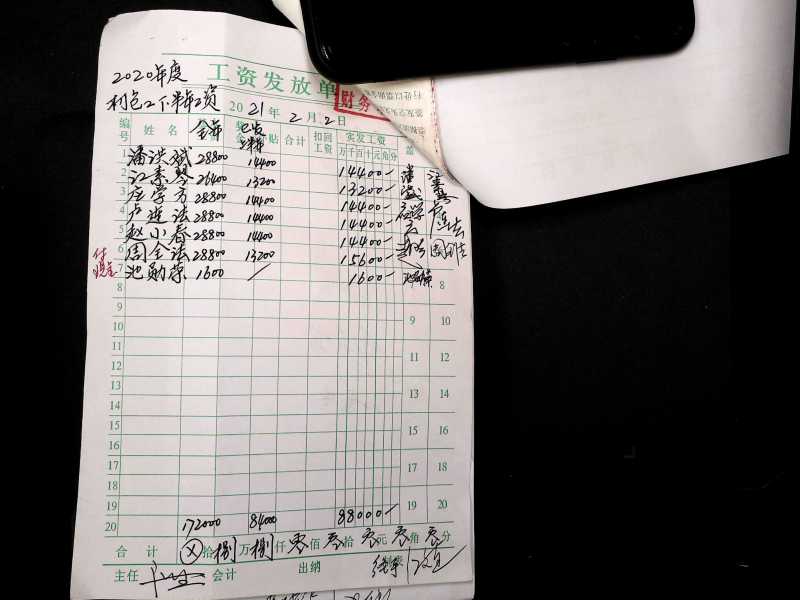 2020年度
工资发放单
利包工下半年工资
2021年2月2日
财务
编号 姓名 全年 奖金 已发上半年 补贴 合计 扣回工资 实发工资 盖
万千百十元角分
1 潘洪斌 28800 14400 14400-
2 江素琴 26400 13200 13200-
3 庄学方 28800 14400 14400-
4 卢连法 28800 14400 14400-
5 赵小春 28800 14400 14400-
6 周全法 28800 13200 15600-
7 池勋荣 1600 / 1600-
8 8
9 9 10
10
11 11 12
12
13 13 14
14
15 15 16
16
17 17 18
18
19 19 20
20 172000 84000 88000-
合计 ⊗拾捌万捌仟零佰零拾零元零角零分
主任 会计 出纳